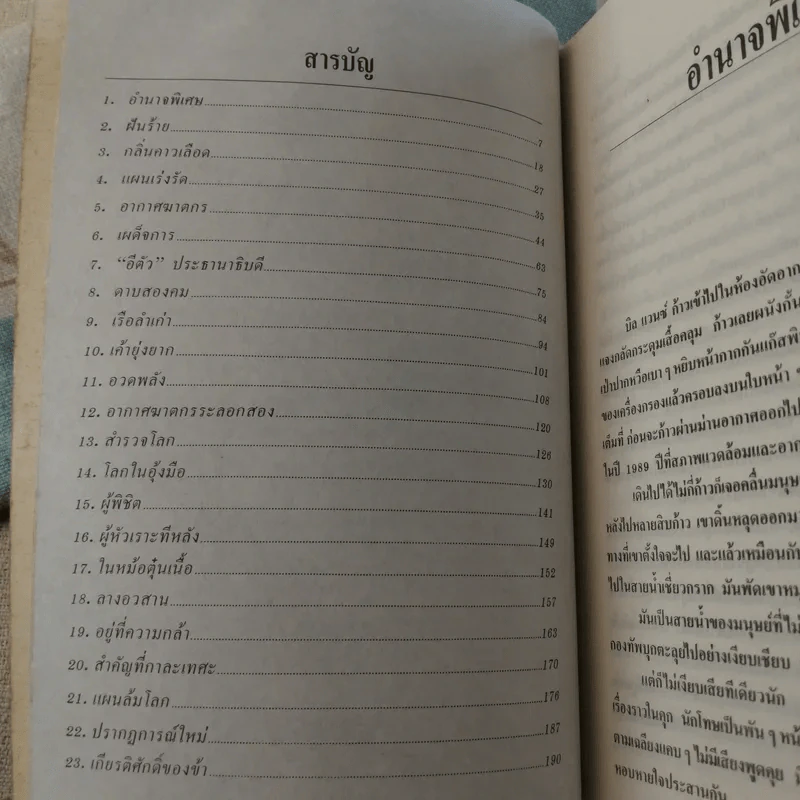 สารบัญ
1. อำนาจพิเศษ 7
2. ฝันร้าย 18
3. กลิ่นคาวเลือด 27
4. แผนเร่งรัด 35
5. อากาศฆาตกร 44
6. เผด็จการ 63
7. “อีตัว” ประธานาธิบดี 75
8. ดาบสองคม 84
9. เรือลำเก่า 94
10. เค้ายุ่งยาก 101
11. อวดพลัง 108
12. อากาศฆาตกรระลอกสอง 120
13. สำรวจโลก 126
14. โลกในอุ้งมือ 130
15. ผู้พิชิต 141
16. ผู้หัวเราะทีหลัง 149
17. ในหม้อตุ๋นเนื้อ 152
18. ลางอวสาน 157
19. อยู่ที่ความกล้า 163
20. สำคัญที่กาละเทศะ 170
21. แผนล้มโลก 176
22. ปรากฏการณ์ใหม่ 187
23. เกียรติศักดิ์ของข้า 190
อำนาจพิเ
บิล แวนซ์ ก้าวเข้าไปในห้องอัดอาก
แจงกลัดกระดุมเสื้อคลุม ก้าวเลยผนังกั้น
เป่าปากหวือเบา ๆ หยิบหน้ากากกันแก๊สพิ
ของเครื่องกรองแล้วครอบลงบนใบหน้า
เต็มที่ ก่อนจะก้าวผ่านม่านอากาศออกไป
ในปี 1989 ปีที่สภาพแวดล้อมและอาก
เดินไปได้ไม่กี่ก้าวก็เจอคลื่นมนุษ
หลังไปหลายสิบก้าว เขาดิ้นหลุดออกมา
ทางที่เขาตั้งใจจะไป และแล้วเหมือนกับ
ไปในสายน้ำเชี่ยวกราก มันพัดเขาหม
มันเป็นสายน้ำของมนุษย์ที่ไม่
กองทัพบุกตะลุยไปอย่างเงียบเชียบ
แต่ก็ไม่เงียบเสียทีเดียวนัก
เรื่องราวในคุก นักโทษเป็นพัน ๆ หน้
ตามเฉลียงแคบ ๆ ไม่มีเสียงพูดคุย
หอบหายใจประสานกัน